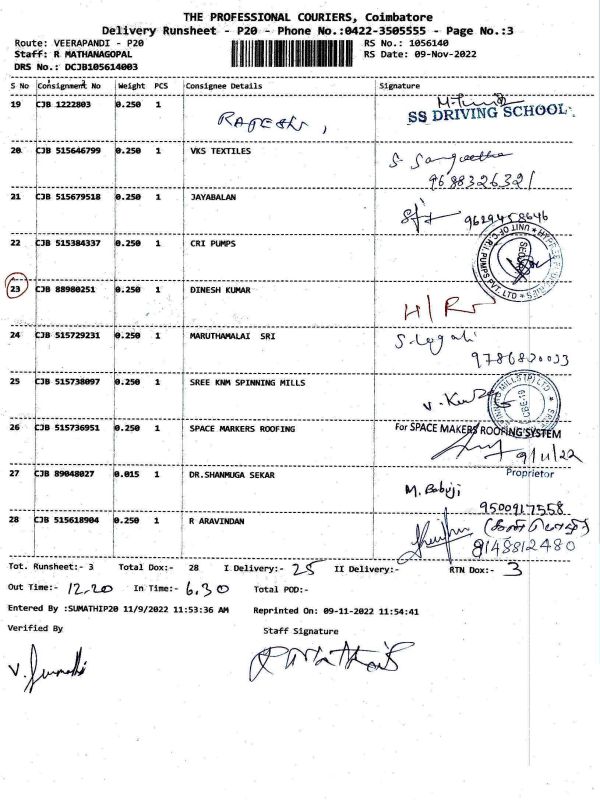 THE PROFESSIONAL COURIERS, Coimbatore
Delivery Runsheet - P20 - Phone No.:0422-3505555 - Page No.:3
Route: VEERAPANDI - P20 RS No.: 1056140
Staff: R MATHANAGOPAL RS Date: 09-Nov-2022
DRS No.: DCJB105614003
S No Consignment No Weight PCS Consignee Details Signature
19 CJB 1222803 0.250 1 RAJESH, SS DRIVING SCHOOL
20 CJB 515646799 0.250 1 VKS TEXTILES S. Sangeetha
9688326321
21 CJB 515679518 0.250 1 JAYABALAN 9629458646
22 CJB 515384337 0.250 1 CRI PUMPS
UNIT OF C.R.I. PUMPS PVT. LTD
23 CJB 88980251 0.250 1 DINESH KUMAR H/R
24 CJB 515729231 0.250 1 MARUTHAMALAI SRI
25 CJB 515738097 0.250 1 SREE KNM SPINNING MILLS
26 CJB 515736951 0.250 1 SPACE MARKERS ROOFING For SPACE MAKERS ROOFING SYSTEM
9/11/22
Proprietor
27 CJB 89048027 0.015 1 DR.SHANMUGA SEKAR M. Babuji
9500917558
28 CJB 515618904 0.250 1 R ARAVINDAN
8148812480
Tot. Runsheet:- 3 Total Dox:- 28 I Delivery:- 25 II Delivery:- RTN Dox:- 3
Out Time:- 12.20 In Time:- 6.30 Total POD:-
Entered By :SUMATHIP20 11/9/2022 11:53:36 AM Reprinted On: 09-11-2022 11:54:41
Verified By Staff Signature